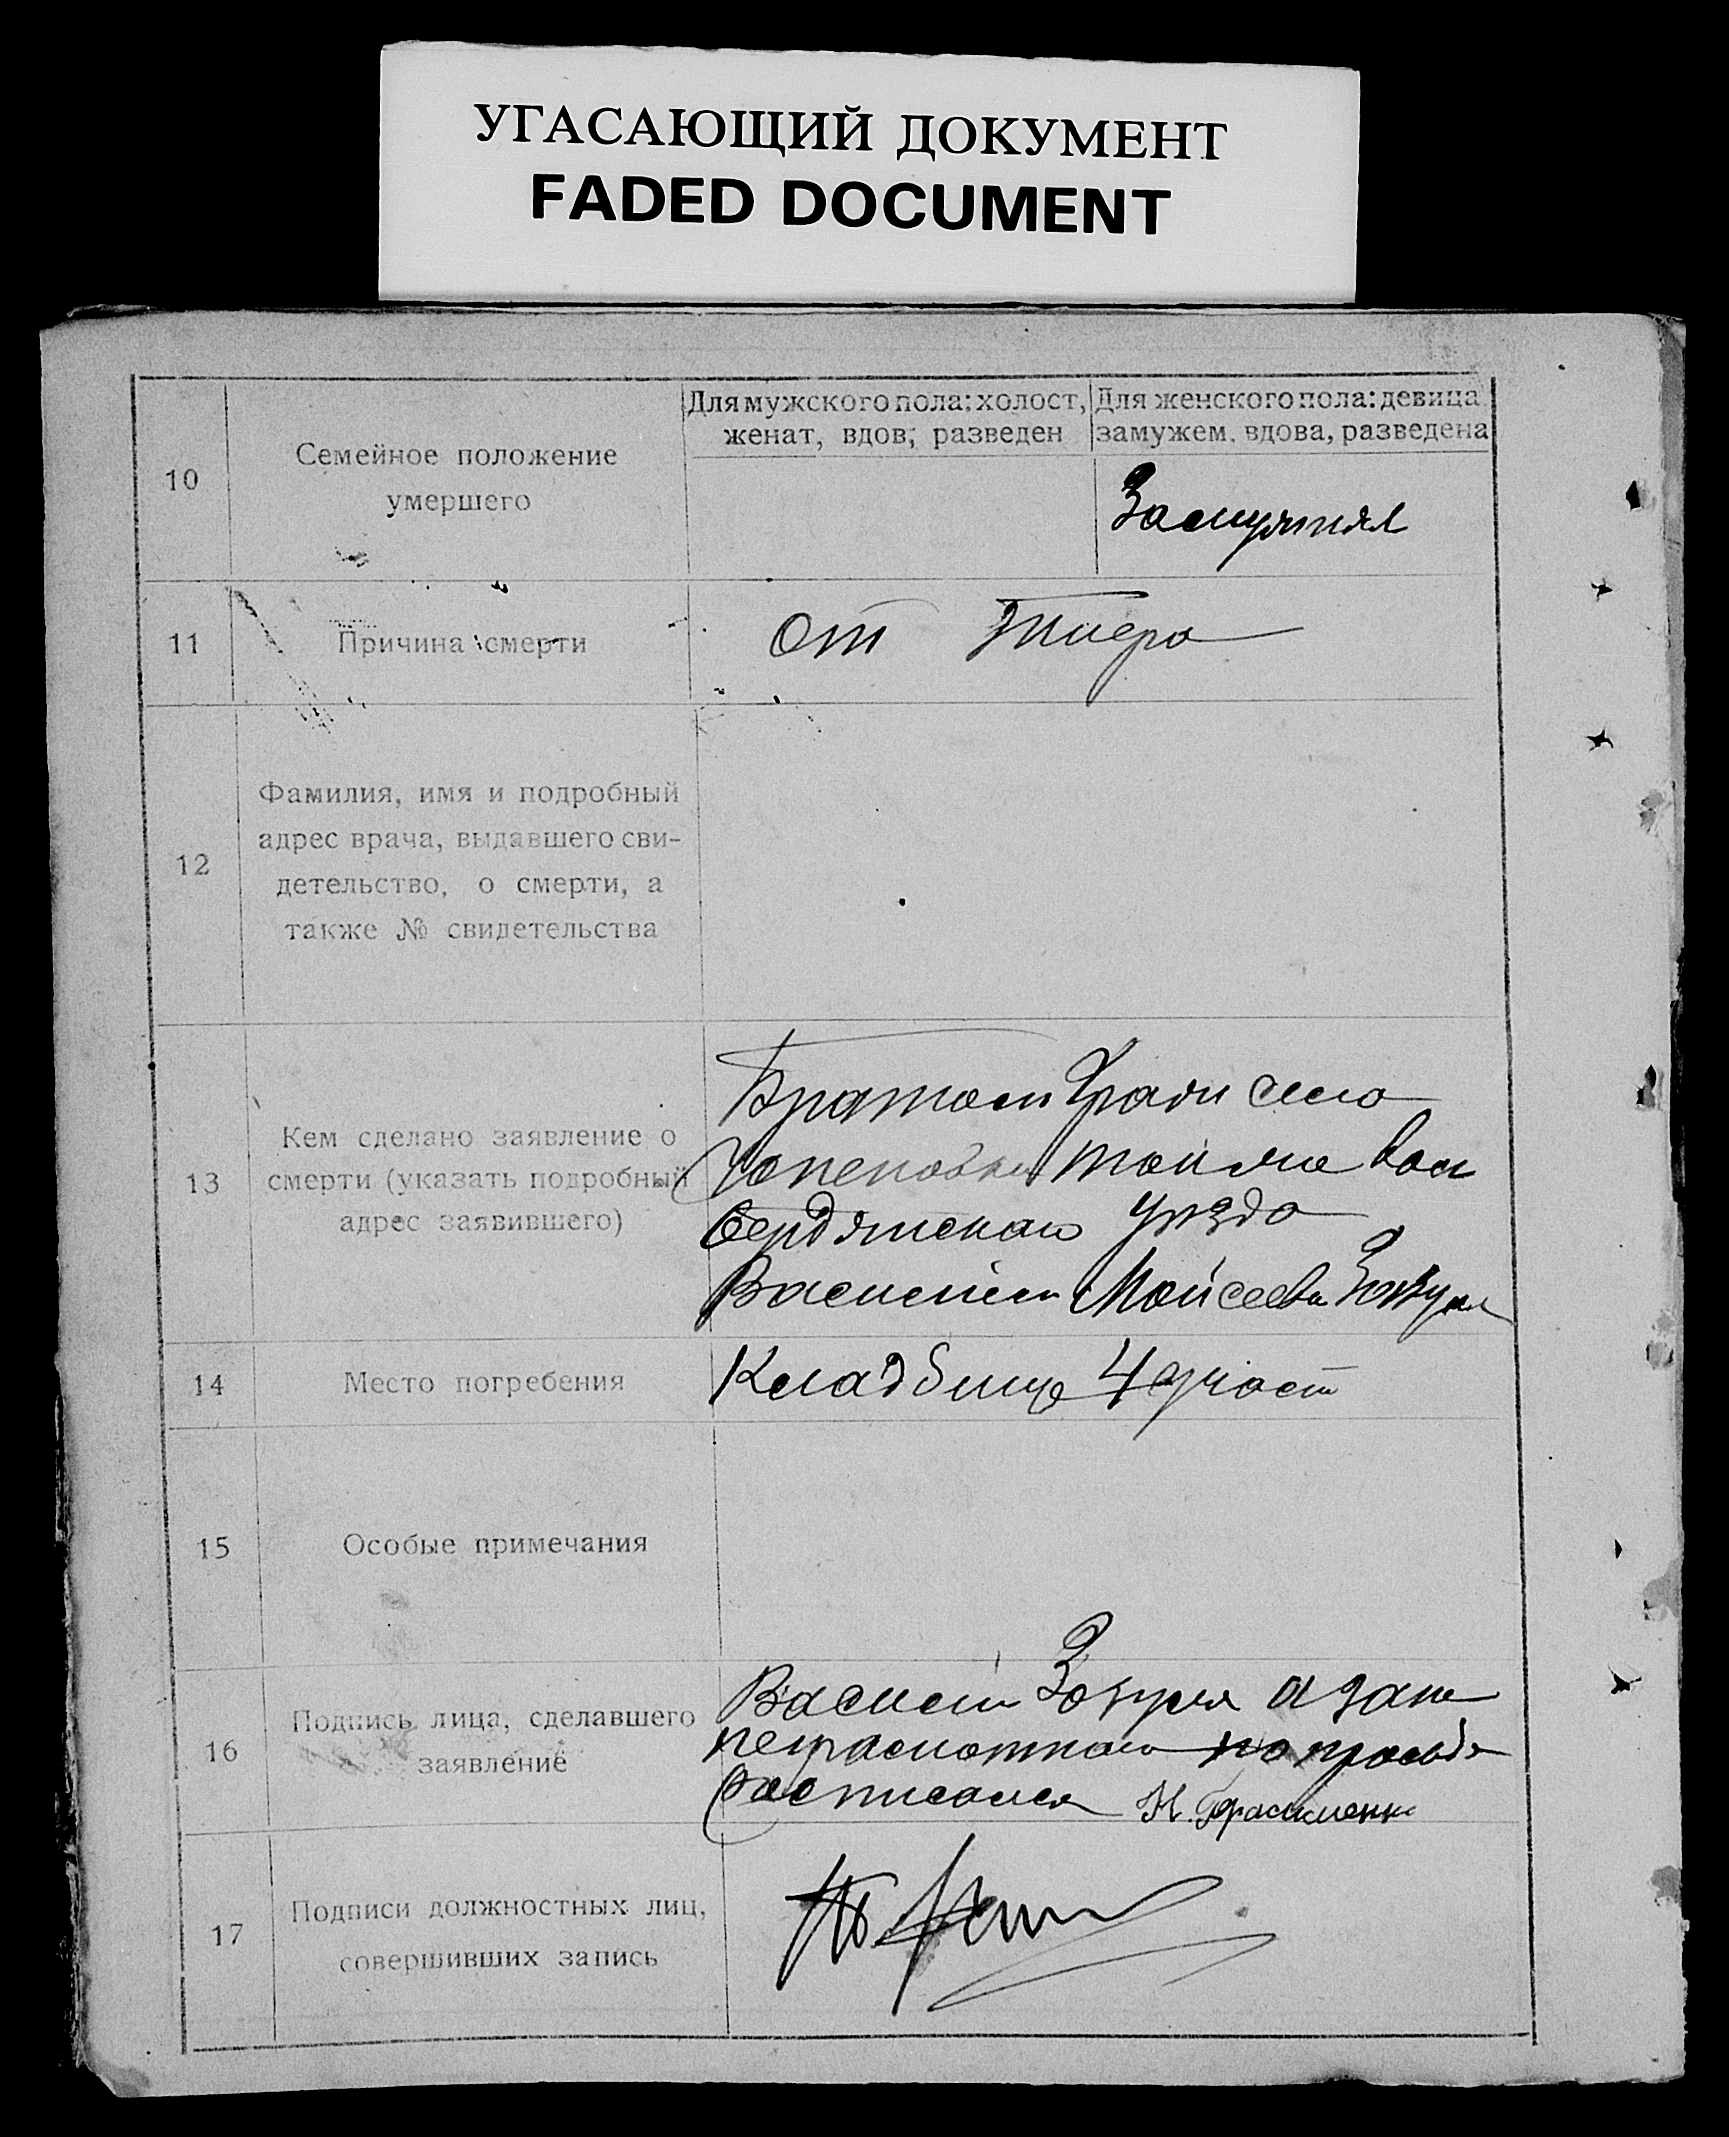 УГАСАЮЩИЙ ДОКУМЕНТ
FADED DOCUMENT
Для мужского пола: холост,
женат, вдов, разведен
Для женского пола: девица
замужем, вдова, разведена
10
Семейное положение
умершего
Замужняя
11
Причина смерти
от
12
Фамилия, имя и подробный
адрес врача, выдавшего сви-
детельство, о смерти, а
также № свидетельства
13
Кем сделано заявление о
смерти (указать подробный
адрес заявившего)
Братом села
вол
Бердянскаго уезда
Василием Моисеев
14
Место погребения
Кладбище 4 участ
15
Особые примечания
16
Подпись лица, сделавшего
заявление
Василий а за не
неграмотнаго по просьбе
росписался Н. Герасименко
17
Подписи должностных лиц,
совершивших запись